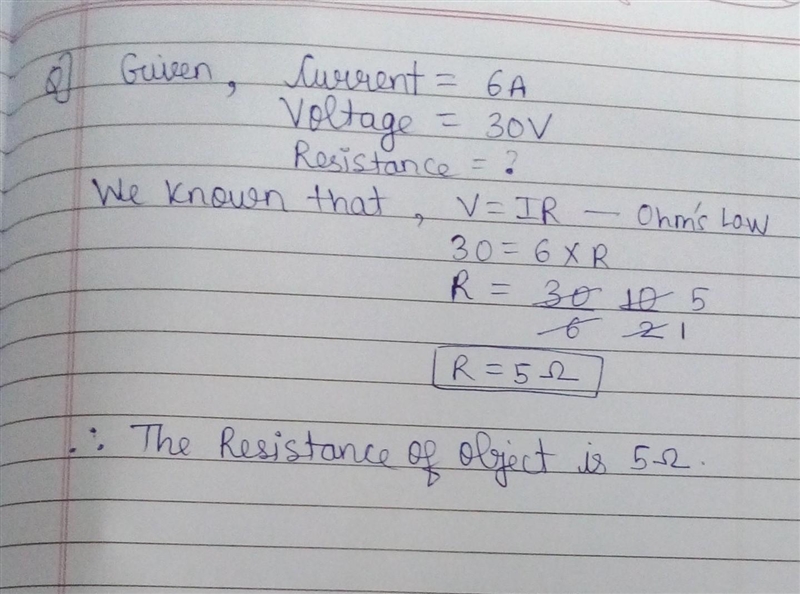 Q] Given, Current = 6A
Voltage = 30V
Resistance = ?
We known that, V = IR — Ohm's Law
30 = 6 X R
R = 30 10 5
6 2 1
R = 5 Ω
∴ The Resistance of Object is 5Ω.